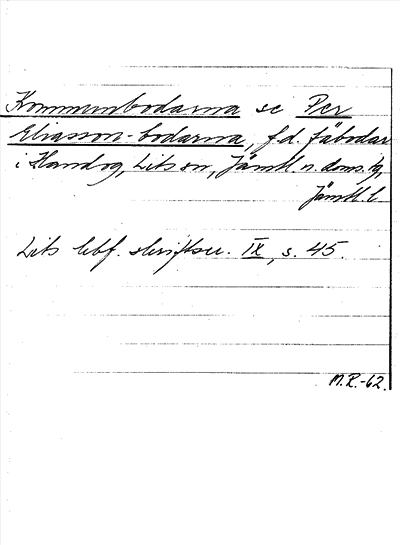 Kommunbodarna se Per
Eliasson-bodarna, f.d. fäbodar
i Handog, Lits sn, Jämtl. n. doms.
Jämtl. l.
Lits hbf. skriftser. IX, s. 45.
M.R.-62.